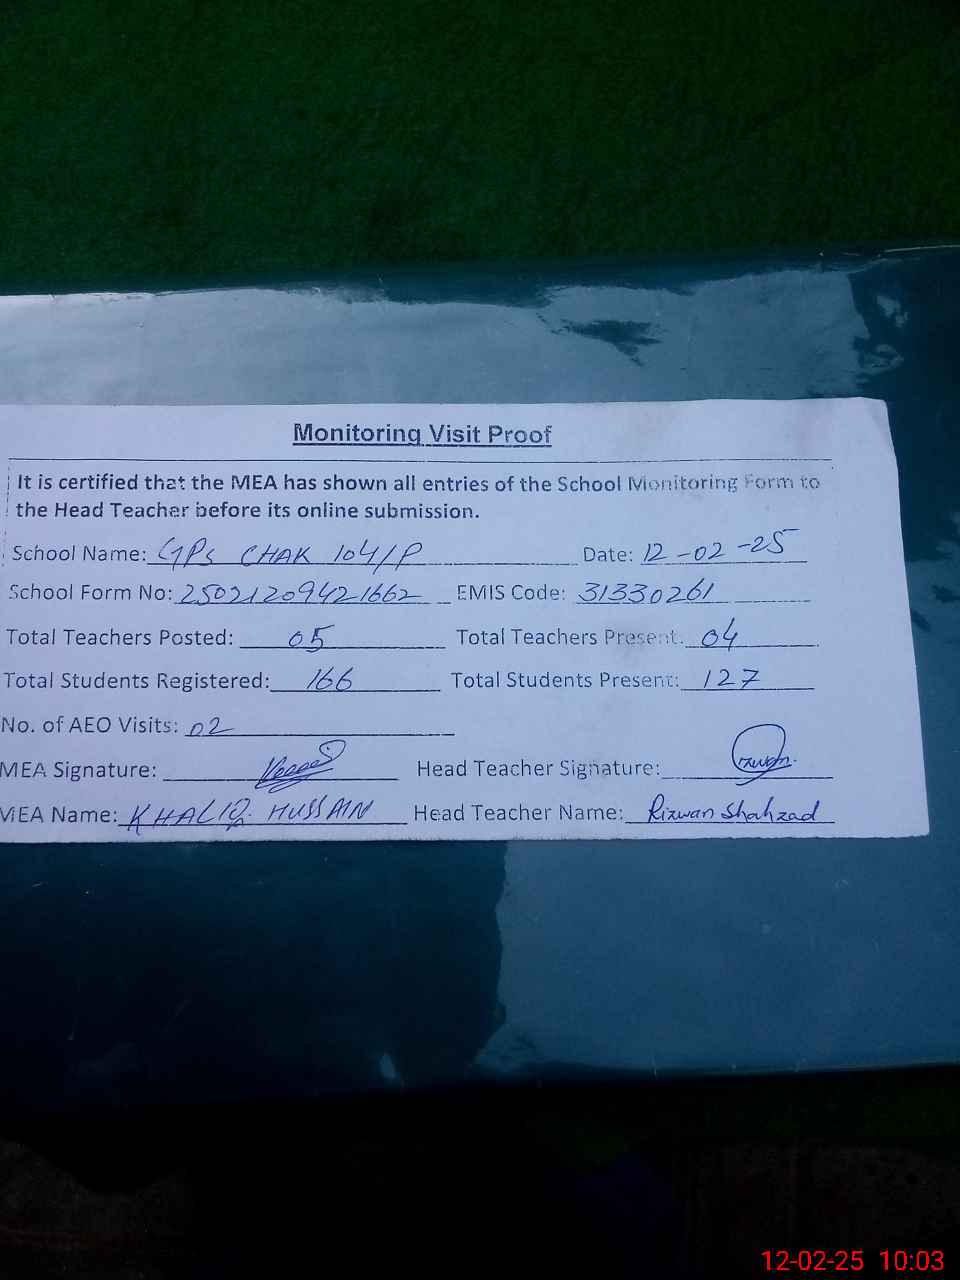 Monitoring Visit Proof
It is certified that the MEA has shown all entries of the School Monitoring Form to
the Head Teacher before its online submission.
School Name: GPS CHAK 104/P Date: 12-02-25
School Form No: 25021209421662 EMIS Code: 31330261
Total Teachers Posted: 05 Total Teachers Present: 04
Total Students Registered: 166 Total Students Present: 127
No. of AEO Visits: 02
MEA Signature: Head Teacher Signature: Rizwan
MEA Name: KHALIQ HUSSAIN Head Teacher Name: Rizwan Shahzad
12-02-25 10:03